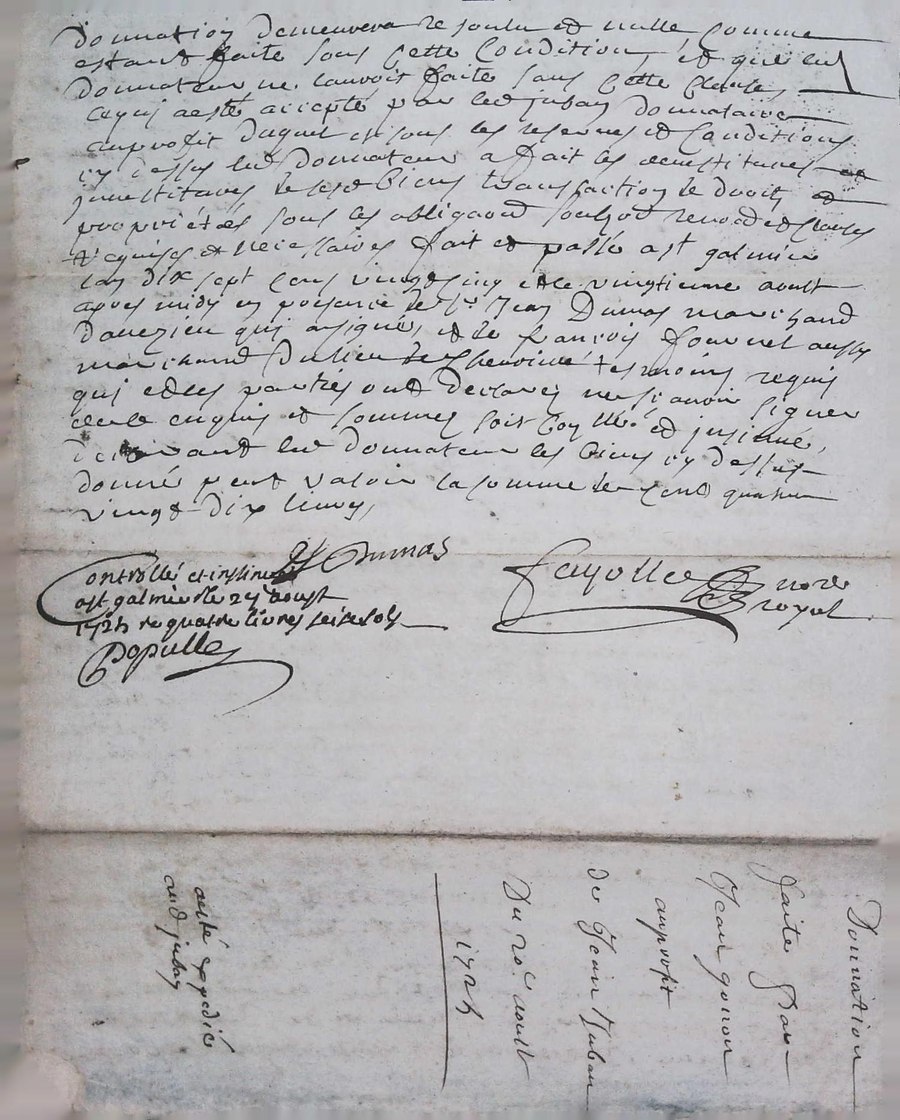 donnation demeurera resoulu et nulle comme
estant faitte sous cette condition, et que led
donnateur ne lauroit faite sans cette clause,
ce qui a esté accepté par led juban donnataire
au proffit duquel et sous les reserves et conditions
cy dessus led donnateur a fait les demestitures et
jnvestitures desesd biens translaction de droit et
proprietés sous les obligaons soubzon renond et clauses
requises et necessaires fait et passé a st galmier
lan dix sept cens vingt cinq et le vingtieme aoust
apres midy en presence de sr Jean Dumas marchand
qui a signé, et de françois fournel aussy
marchand dud lieu de temoins requis
qui et les parties ont declarés ne sçavoir signer
de ce enquis et sommes soit et jnsinué,
declarant led donnateur les biens cy dessus
donné peut valoir la somme de cent quatre
vingt dix livres,
Dumas
Controllé et insinué
a st galmier le 27 aoust
1725 re quatre livres seize sols
Populle
Fayolle nore
royal
Donnation
faite par
Jean gonon
au profit
de Jean Juban
Du 20e aoust
1725
aesté expedié
aud juban